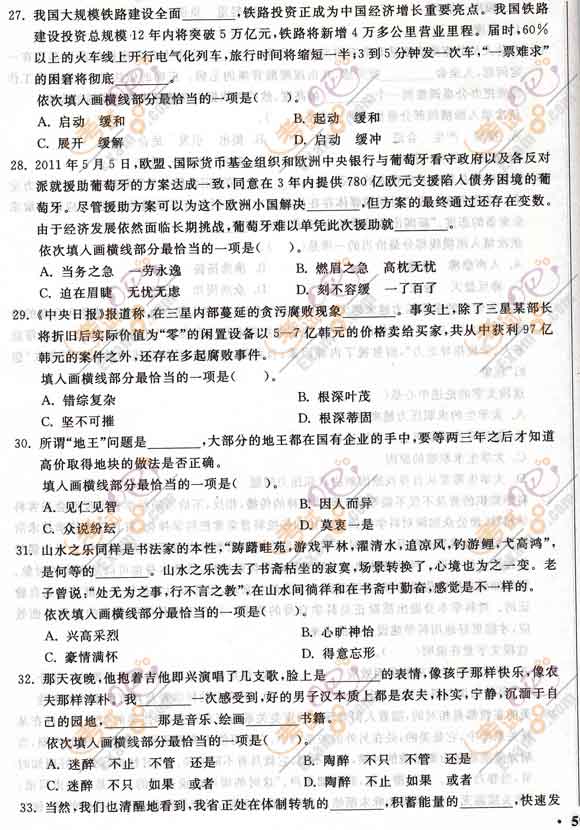 27. 我国大规模铁路建设全面________,铁路投资正成为中国经济增长重要亮点。我国铁路
建设投资总规模12年内将突破5万亿元,铁路将新增4万多公里营业里程。届时,60%
以上的火车线上开行电气化列车,旅行时间将缩短一半;3到5分钟发一次车,“一票难求”
的困窘将彻底________。
依次填入画横线部分最恰当的一项是( )。
A. 启动 缓和 B. 起动 缓和
C. 展开 缓解 D. 启动 缓冲
28. 2011年5月5日,欧盟、国际货币基金组织和欧洲中央银行与葡萄牙看守政府以及各反对
派就援助葡萄牙的方案达成一致,同意在3年内提供780亿欧元支援陷入债务困境的葡
萄牙。尽管援助方案可以为这个欧洲小国解决________,但方案的最终通过还存在变数。
由于经济发展依然面临长期挑战,葡萄牙难以单凭此次援助就________。
依次填入画横线部分最恰当的一项是( )。
A. 当务之急 一劳永逸 B. 燃眉之急 高枕无忧
C. 迫在眉睫 无忧无虑 D. 刻不容缓 一了百了
29. 《中央日报》报道称,在三星内部蔓延的贪污腐败现象________。事实上,除了三星某部长
将折旧后实际价值为“零”的闲置设备以5—7亿韩元的价格卖给买家,共从中获利97亿
韩元的案件之外,还存在多起腐败事件。
填入画横线部分最恰当的一项是( )。
A. 错综复杂 B. 根深叶茂
C. 坚不可摧 D. 根深蒂固
30. 所谓“地王”问题是________,大部分的地王都在国有企业的手中,要等两三年之后才知道
高价取得地块的做法是否正确。
填入画横线部分最恰当的一项是( )。
A. 见仁见智 B. 因人而异
C. 众说纷纭 D. 莫衷一是
31. 山水之乐同样是书法家的本性,“踌躇畦苑,游戏平林,濯清水,追凉风,钓游鲤,弋高鸿”,
是何等的________。山水之乐洗去了书斋枯坐的寂寞,场景转换了,心境也为之一变。老
子曾说:“处无为之事,行不言之教”,在山水间徜徉和在书斋中勤奋,感觉是不一样的。
依次填入画横线部分最恰当的一项是( )。
A. 兴高采烈 B. 心旷神怡
C. 豪情满怀 D. 得意忘形
32. 那天夜晚,他抱着吉他即兴演唱了几支歌,脸上是________的表情,像孩子那样快乐,像农
夫那样淳朴。我________一次感受到,好的男子汉本质上都是农夫,朴实,宁静,沉湎于自
己的园地,________那是音乐、绘画________书籍。
依次填入画横线部分最恰当的一项是( )。
A. 迷醉 不止 不管 还是 B. 陶醉 不只 不管 还是
C. 迷醉 不只 如果 或者 D. 陶醉 不止 如果 或者
33. 当然,我们也清醒地看到,我省正处在体制转轨的________,积蓄能量的________,快速发
• 5